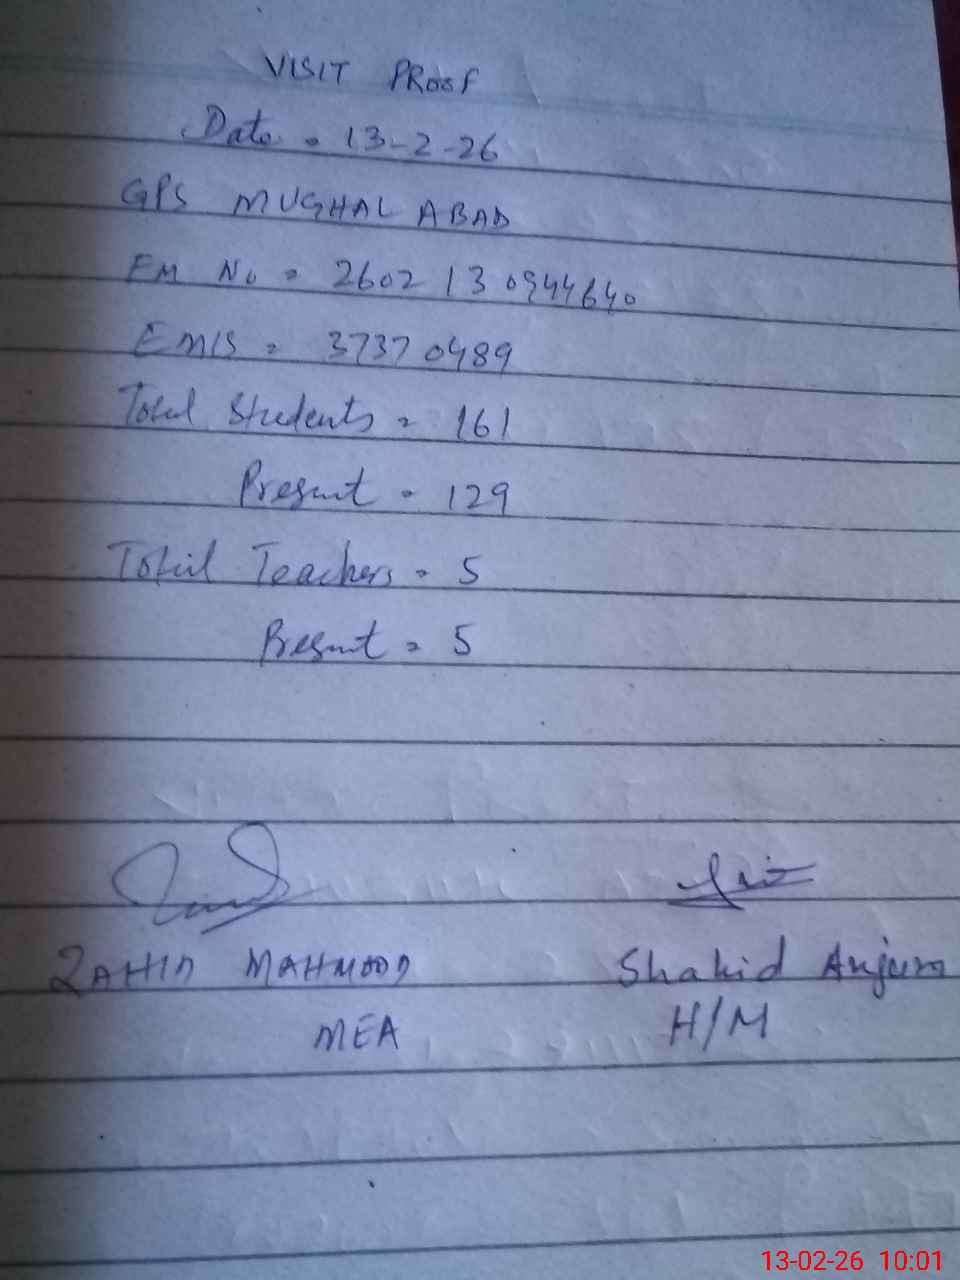 VISIT PROOF
Date = 13-2-26
GPS MUGHAL ABAD
EM No = 260213 0944640
EMIS = 37370489
Total Students = 161
Present = 129
Total Teachers = 5
Present = 5
ZAHID MAHMOOD
Shahid Anjum
MEA
H/M
13-02-26 10:01